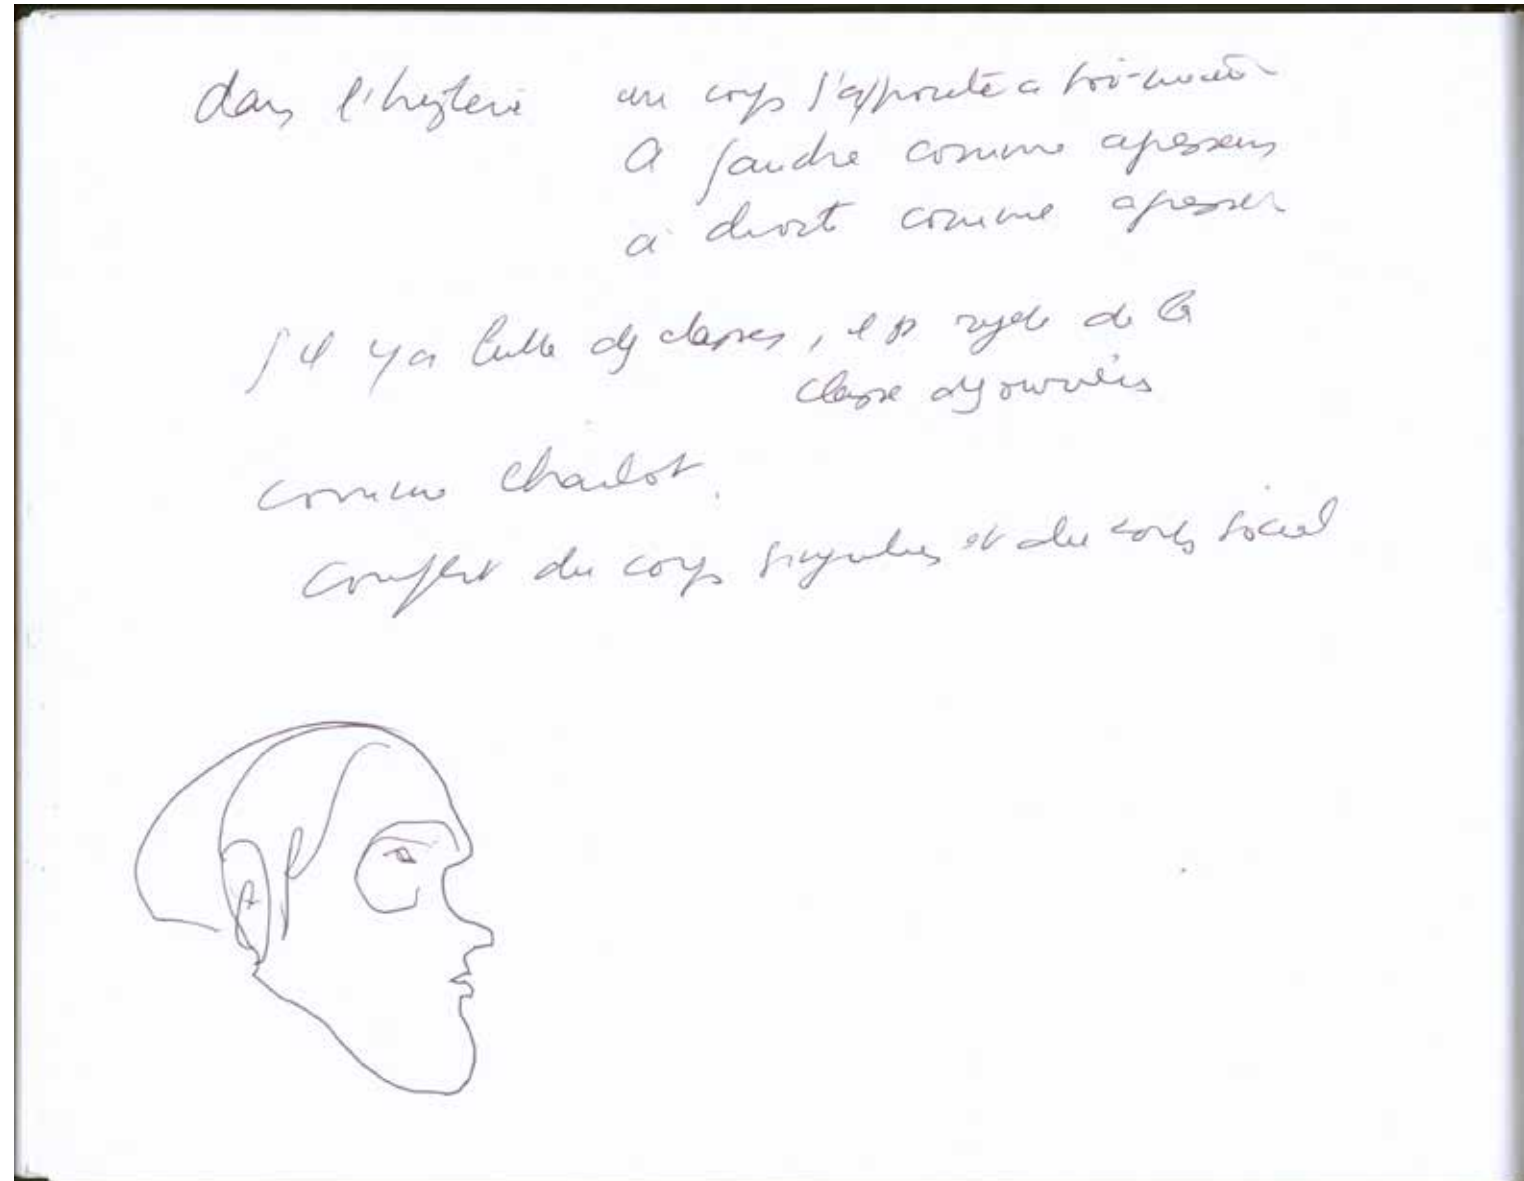 dans l'hysterie un corps s'affronte a soi-même
a gauche comme agresseur
a droite comme agresser
s'il y a lutte des classes, de la
classe des ouvriers
comme Charlot.
Conflit du corps singulier et du corps social